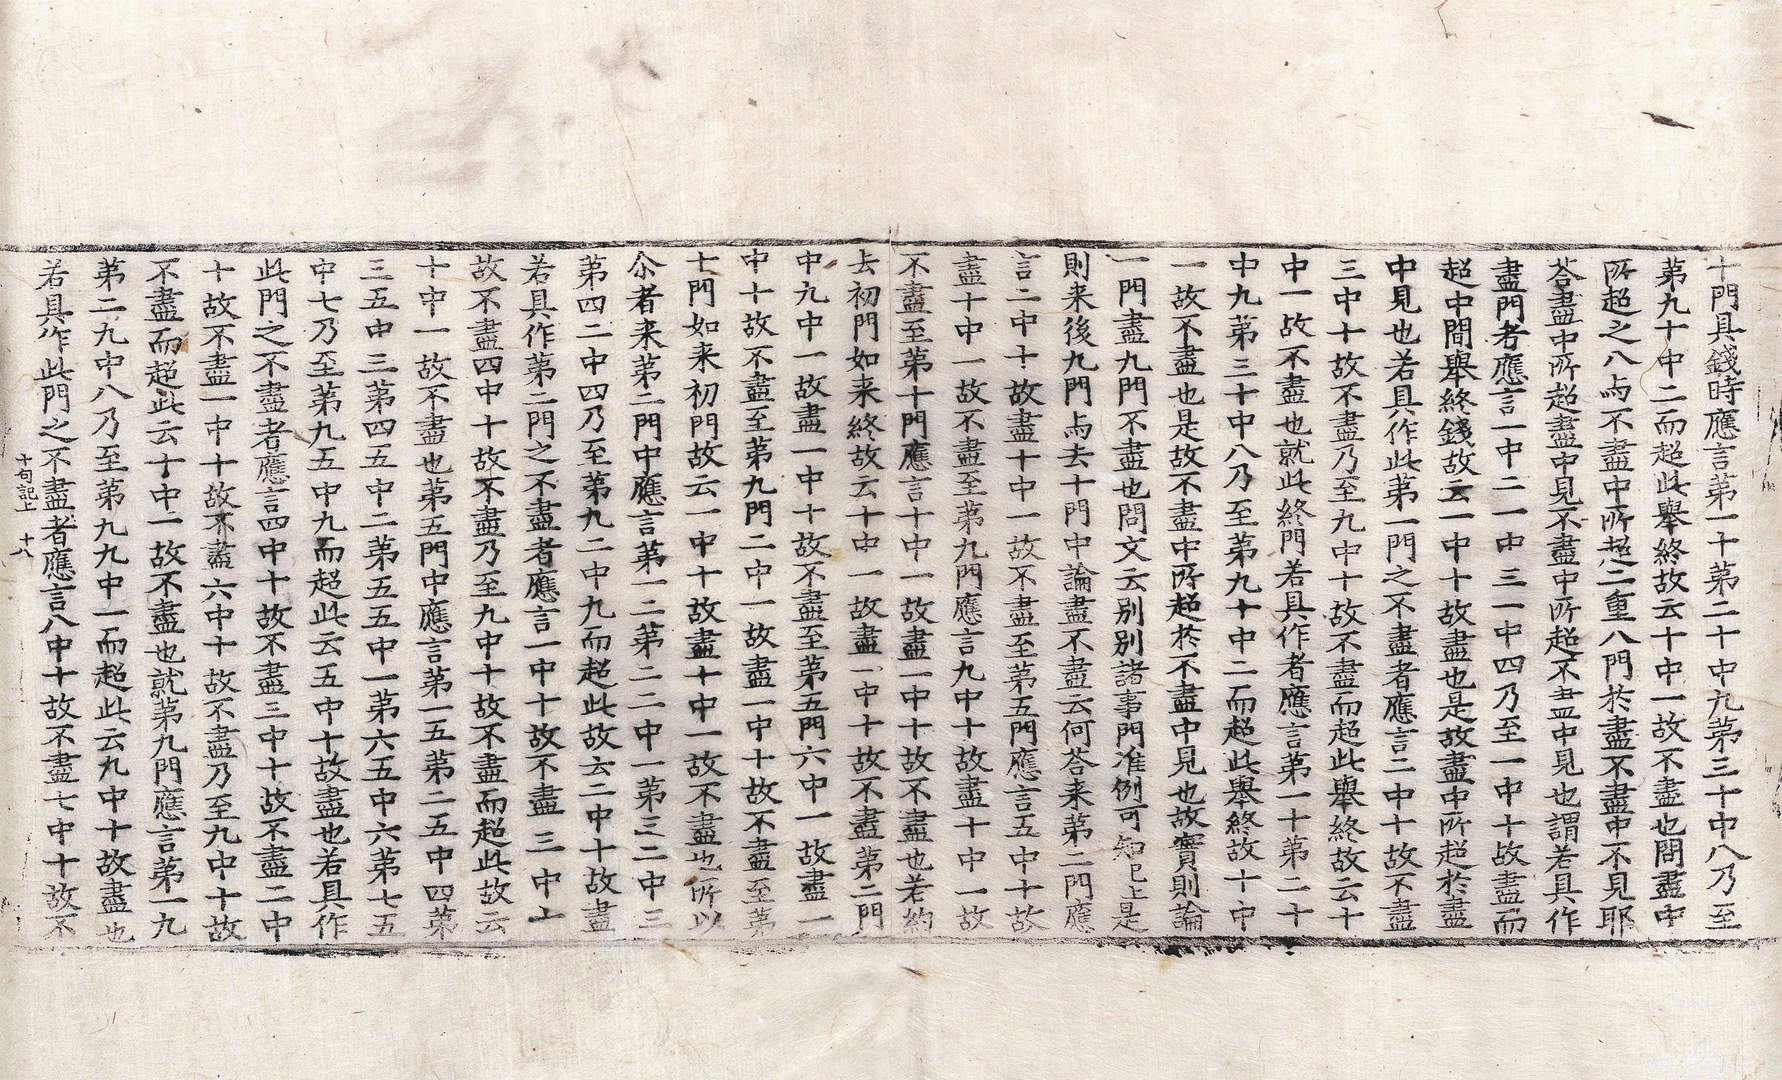 十門具錢時應言第一十第二十中九第三十中八乃至
第九十中二而超此擧終故云十中一故不盡也問盡中
所超之八与不盡中所超二重八門於盡不盡中不見耶
荅盡中所超盡中見不盡中所超不盡中見也謂若具作
盡門者應言一中二一中三一中四乃至一中十故盡而
超中間擧終錢故云一中十故盡也是故盡中所超於盡
中見也若具作此第一門之不盡者應言二中十故不盡
三中十故不盡乃至九中十故不盡而超此擧終故云十
中一故不盡也就此終門若具作者應言第一十第二十
中九第三十中八乃至第九十中二而超此擧終故十中
一故不盡也是故不盡中所超於不盡中見也故實則論
一門盡九門不盡也問文云別別諸事門准例可知已上是
則来後九門与去十門中論盡不盡云何荅来第二門應
言二中十故盡十中一故不盡至第五門應言五中十故
盡十中一故不盡至第九門應言九中十故盡十中一故
不盡至第十門應言十中一故盡一中十故不盡也若約
去初門如来終故云十中一故盡一中十故不盡第二門
中九中一故盡一中十故不盡至第五門六中一故盡一
中十故不盡至第九門二中一故盡一中十故不盡至第
十門如来初門故云一中十故盡十中一故不盡也所以
尒者来第二門中應言第一二第二二中一第三二中三
第四二中四乃至第九二中九而超此故云二中十故盡
若具作第二門之不盡者應言一中十故不盡三中十
故不盡四中十故不盡乃至九中十故不盡而超此故云
十中一故不盡也第五門中應言第一五第二五中四第
三五中三第四五中二第五五中一第六五中六第七五
中七乃至第九五中九而超此云五中十故盡也若具作
此門之不盡者應言四中十故不盡三中十故不盡二中
十故不盡一中十故不盡六中十故不盡乃至九中十故
不盡而超此云十中一故不盡也就第九門應言第一九
第二九中八乃至第九九中一而超此云九中十故盡也
若具作此門之不盡者應言八中十故不盡七中十故不
十句記上 十八